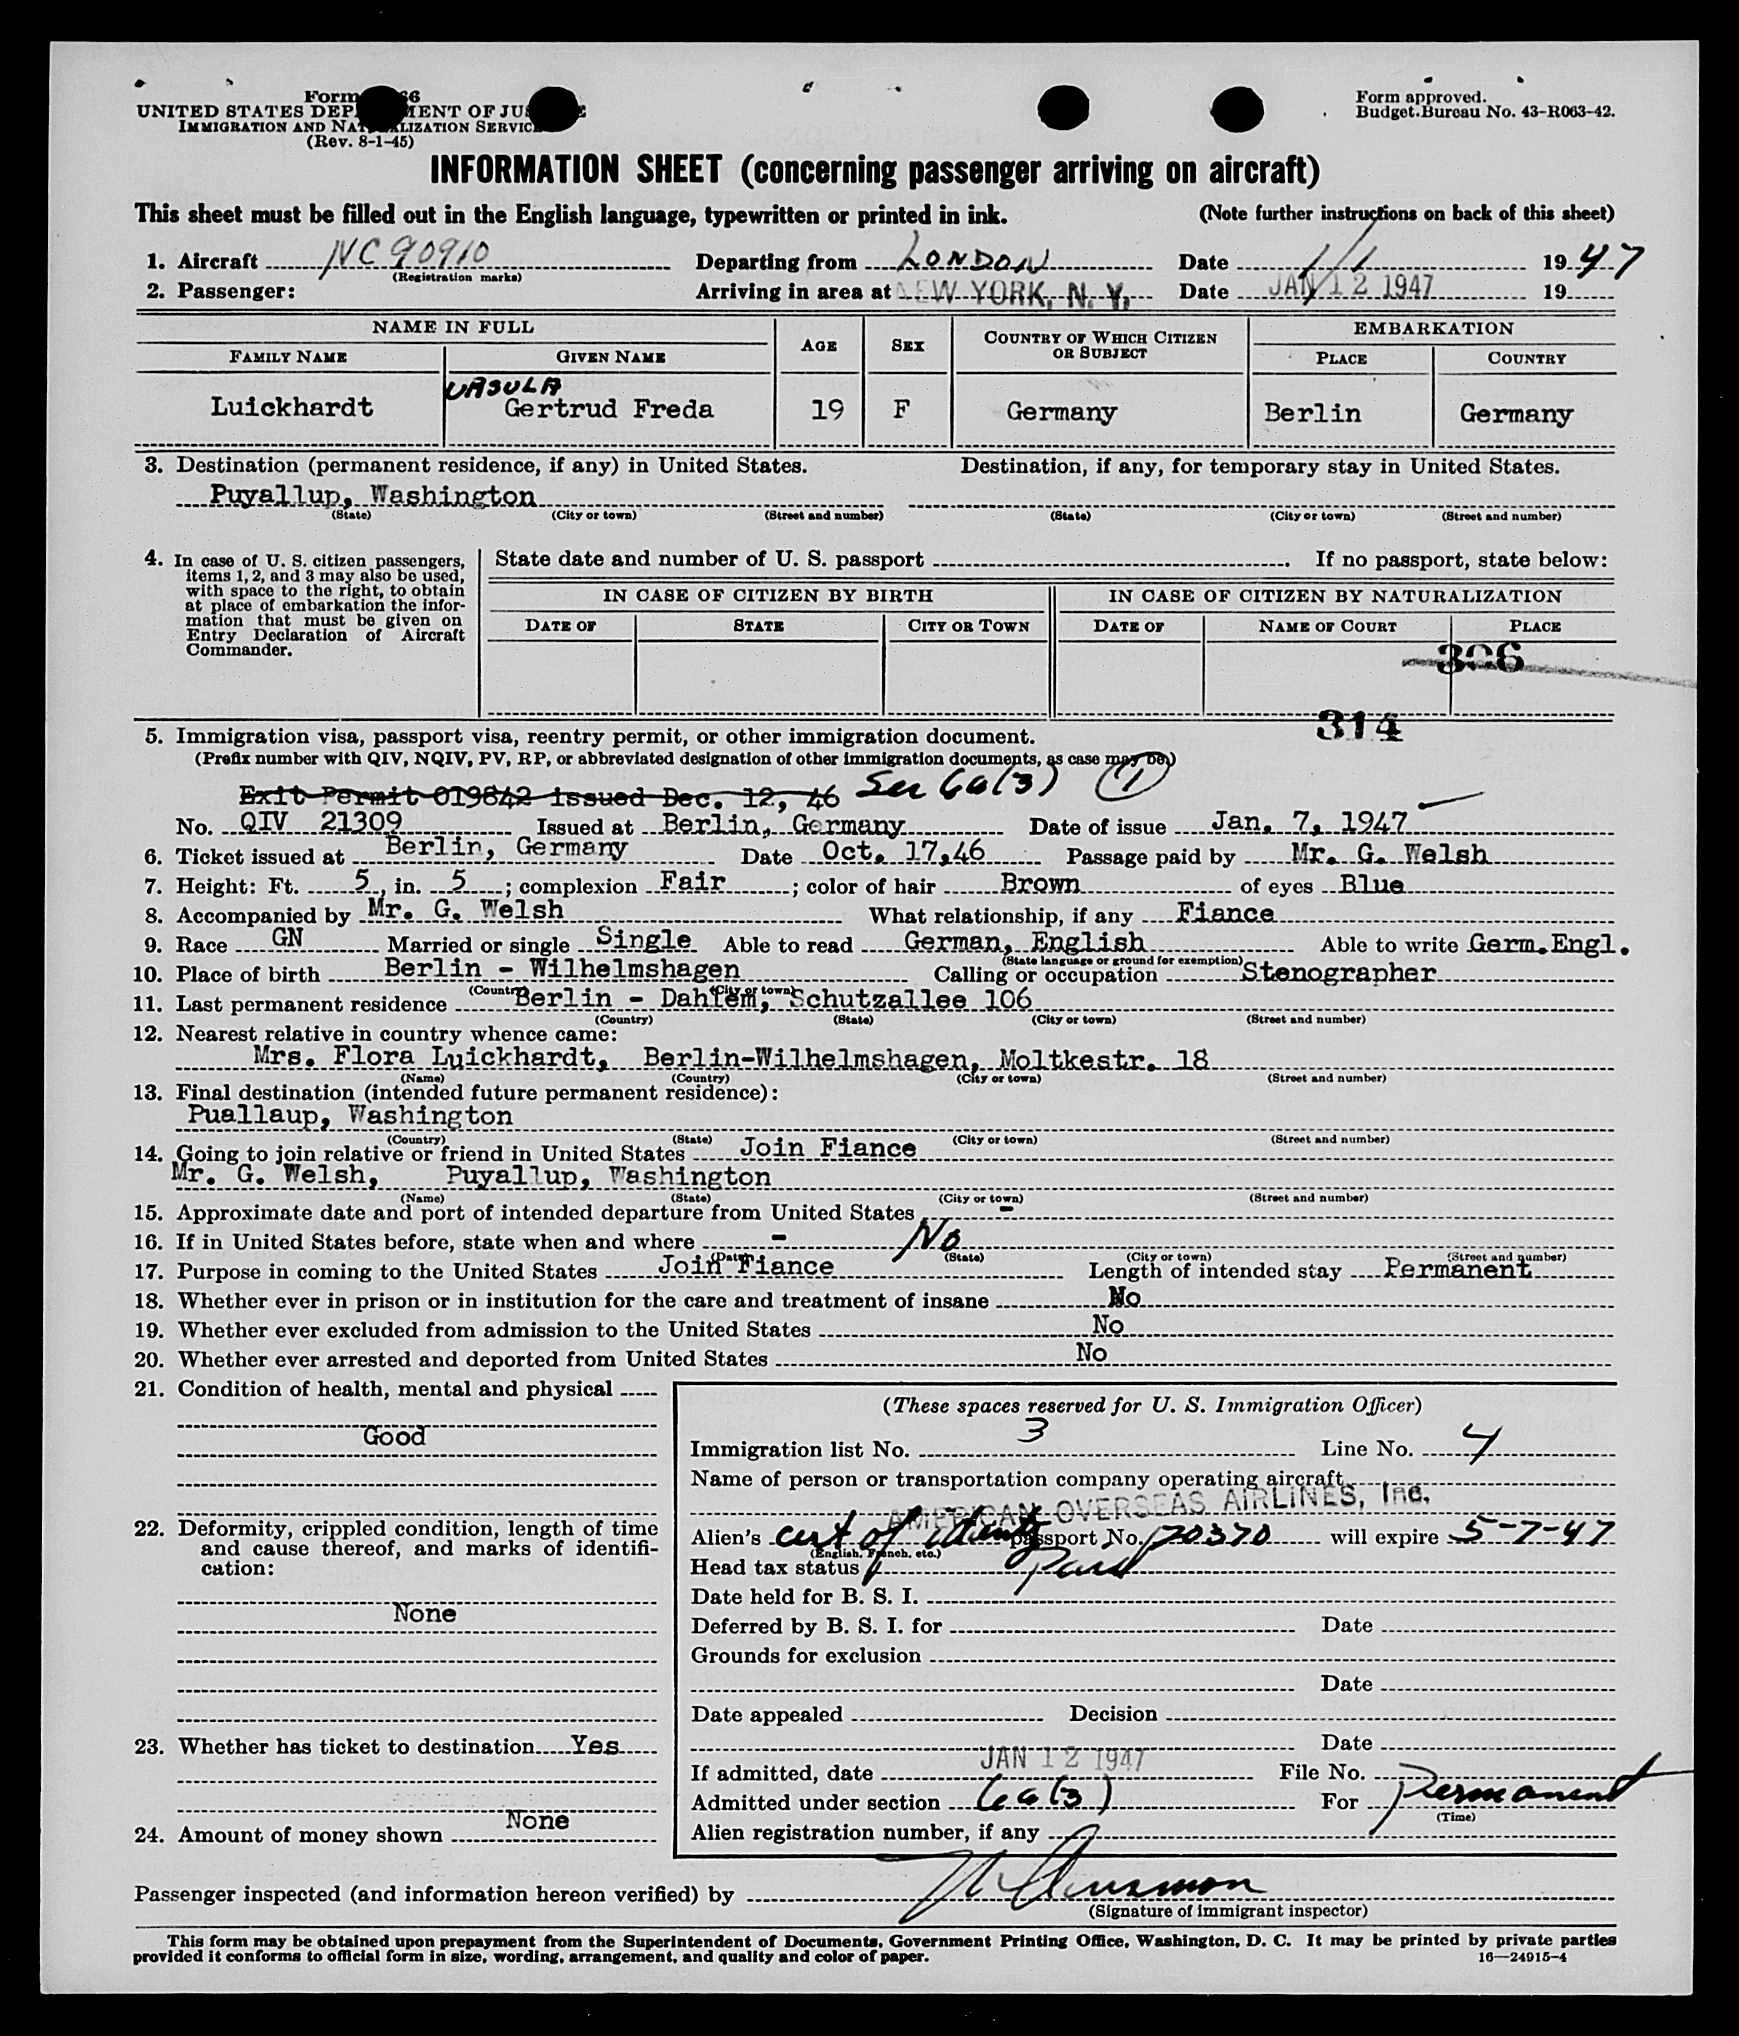 Form 66
UNITED STATES DEP MENT OF JUS E
IMMIGRATION AND NATURALIZATION SERVICE
(Rev. 8-1-45)
Form approved.
Budget Bureau No. 43-R063-42.
INFORMATION SHEET (concerning passenger arriving on aircraft)
This sheet must be filled out in the English language, typewritten or printed in ink. (Note further instructions on back of this sheet)
1. Aircraft NC 90910 Departing from LONDON Date 1/1 1947
(Registration marks)
2. Passenger: Arriving in area at NEW YORK, N. Y. Date JAN 12 1947 19
NAME IN FULL EMBARKATION
FAMILY NAME GIVEN NAME AGE SEX COUNTRY OF WHICH CITIZEN OR SUBJECT PLACE COUNTRY
URSULA
Luickhardt Gertrud Freda 19 F Germany Berlin Germany
3. Destination (permanent residence, if any) in United States. Destination, if any, for temporary stay in United States.
Puyallup, Washington
(State) (City or town) (Street and number) (State) (City or town) (Street and number)
4. In case of U. S. citizen passengers, items 1, 2, and 3 may also be used, with space to the right, to obtain at place of embarkation the information that must be given on Entry Declaration of Aircraft Commander.
State date and number of U. S. passport . If no passport, state below:
IN CASE OF CITIZEN BY BIRTH IN CASE OF CITIZEN BY NATURALIZATION
DATE OF STATE CITY OR TOWN DATE OF NAME OF COURT PLACE
306
314
5. Immigration visa, passport visa, reentry permit, or other immigration document.
(Prefix number with QIV, NQIV, PV, RP, or abbreviated designation of other immigration documents, as case may be.)
Exit Permit 019842 issued Dec. 12, 46 Sec 6a(3) 1
No. QIV 21309 Issued at Berlin, Germany Date of issue Jan. 7, 1947
6. Ticket issued at Berlin, Germany Date Oct. 17,46 Passage paid by Mr. G. Welsh
7. Height: Ft. 5, in. 5; complexion Fair; color of hair Brown of eyes Blue
8. Accompanied by Mr. G. Welsh What relationship, if any Fiance
9. Race GN Married or single Single Able to read German, English Able to write Germ.Engl.
(State language or ground for exemption)
10. Place of birth Berlin - Wilhelmshagen Calling or occupation Stenographer
(Country) (City or town)
11. Last permanent residence Berlin - Dahlem, Schutzallee 106
(Country) (State) (City or town) (Street and number)
12. Nearest relative in country whence came:
Mrs. Flora Luickhardt, Berlin-Wilhelmshagen, Moltkestr. 18
(Name) (Country) (City or town) (Street and number)
13. Final destination (intended future permanent residence):
Puallaup, Washington
(Country) (State) (City or town) (Street and number)
14. Going to join relative or friend in United States Join Fiance
Mr. G. Welsh, Puyallup, Washington
(Name) (State) (City or town) (Street and number)
15. Approximate date and port of intended departure from United States -
16. If in United States before, state when and where - No
(Date) (State) (City or town) (Street and number)
17. Purpose in coming to the United States Join Fiance Length of intended stay Permanent
18. Whether ever in prison or in institution for the care and treatment of insane No
19. Whether ever excluded from admission to the United States No
20. Whether ever arrested and deported from United States No
21. Condition of health, mental and physical
Good
22. Deformity, crippled condition, length of time and cause thereof, and marks of identification:
None
23. Whether has ticket to destination Yes
24. Amount of money shown None
(These spaces reserved for U. S. Immigration Officer)
Immigration list No. 3 Line No. 4
Name of person or transportation company operating aircraft
AMERICAN OVERSEAS AIRLINES, Inc.
Alien's cert of identity passport No. 170370 will expire 5-7-47
(English, French, etc.)
Head tax status Paid
Date held for B. S. I.
Deferred by B. S. I. for Date
Grounds for exclusion
Date
Date appealed Decision
Date
If admitted, date JAN 12 1947 File No.
Admitted under section 6a(3) For Permanent
(Time)
Alien registration number, if any
Passenger inspected (and information hereon verified) by
(Signature of immigrant inspector)
This form may be obtained upon prepayment from the Superintendent of Documents, Government Printing Office, Washington, D. C. It may be printed by private parties
provided it conforms to official form in size, wording, arrangement, and quality and color of paper. 16—24915-4